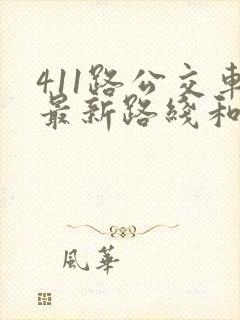 411路公交車
最新路綫和
風華